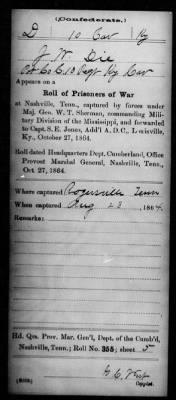 (Confederate.)
D 10 Cav Ky
J. W. Die
Co. 10 Regt Ky Cav
Appears on a
Roll of Prisoners of War
at Nashville, Tenn., captured by forces under
Maj. Gen. W. T. Sherman, commanding Mili-
tary Division of the Mississippi, and forwarded
to Capt. S. E. Jones, Add'l A. D. C., Louisville,
Ky., October 27, 1864.
Roll dated Headquarters Dept. Cumberland, Office
Provost Marshal General, Nashville, Tenn.,
Oct 27, 1864.
Where captured Rogersville Tenn
When captured Aug 23, 1864.
Remarks:
Hd. Qrs. Prov. Mar. Gen'l, Dept. of the Cumb'd,
Nashville, Tenn.; Roll No. 355; sheet 5
Copyist.